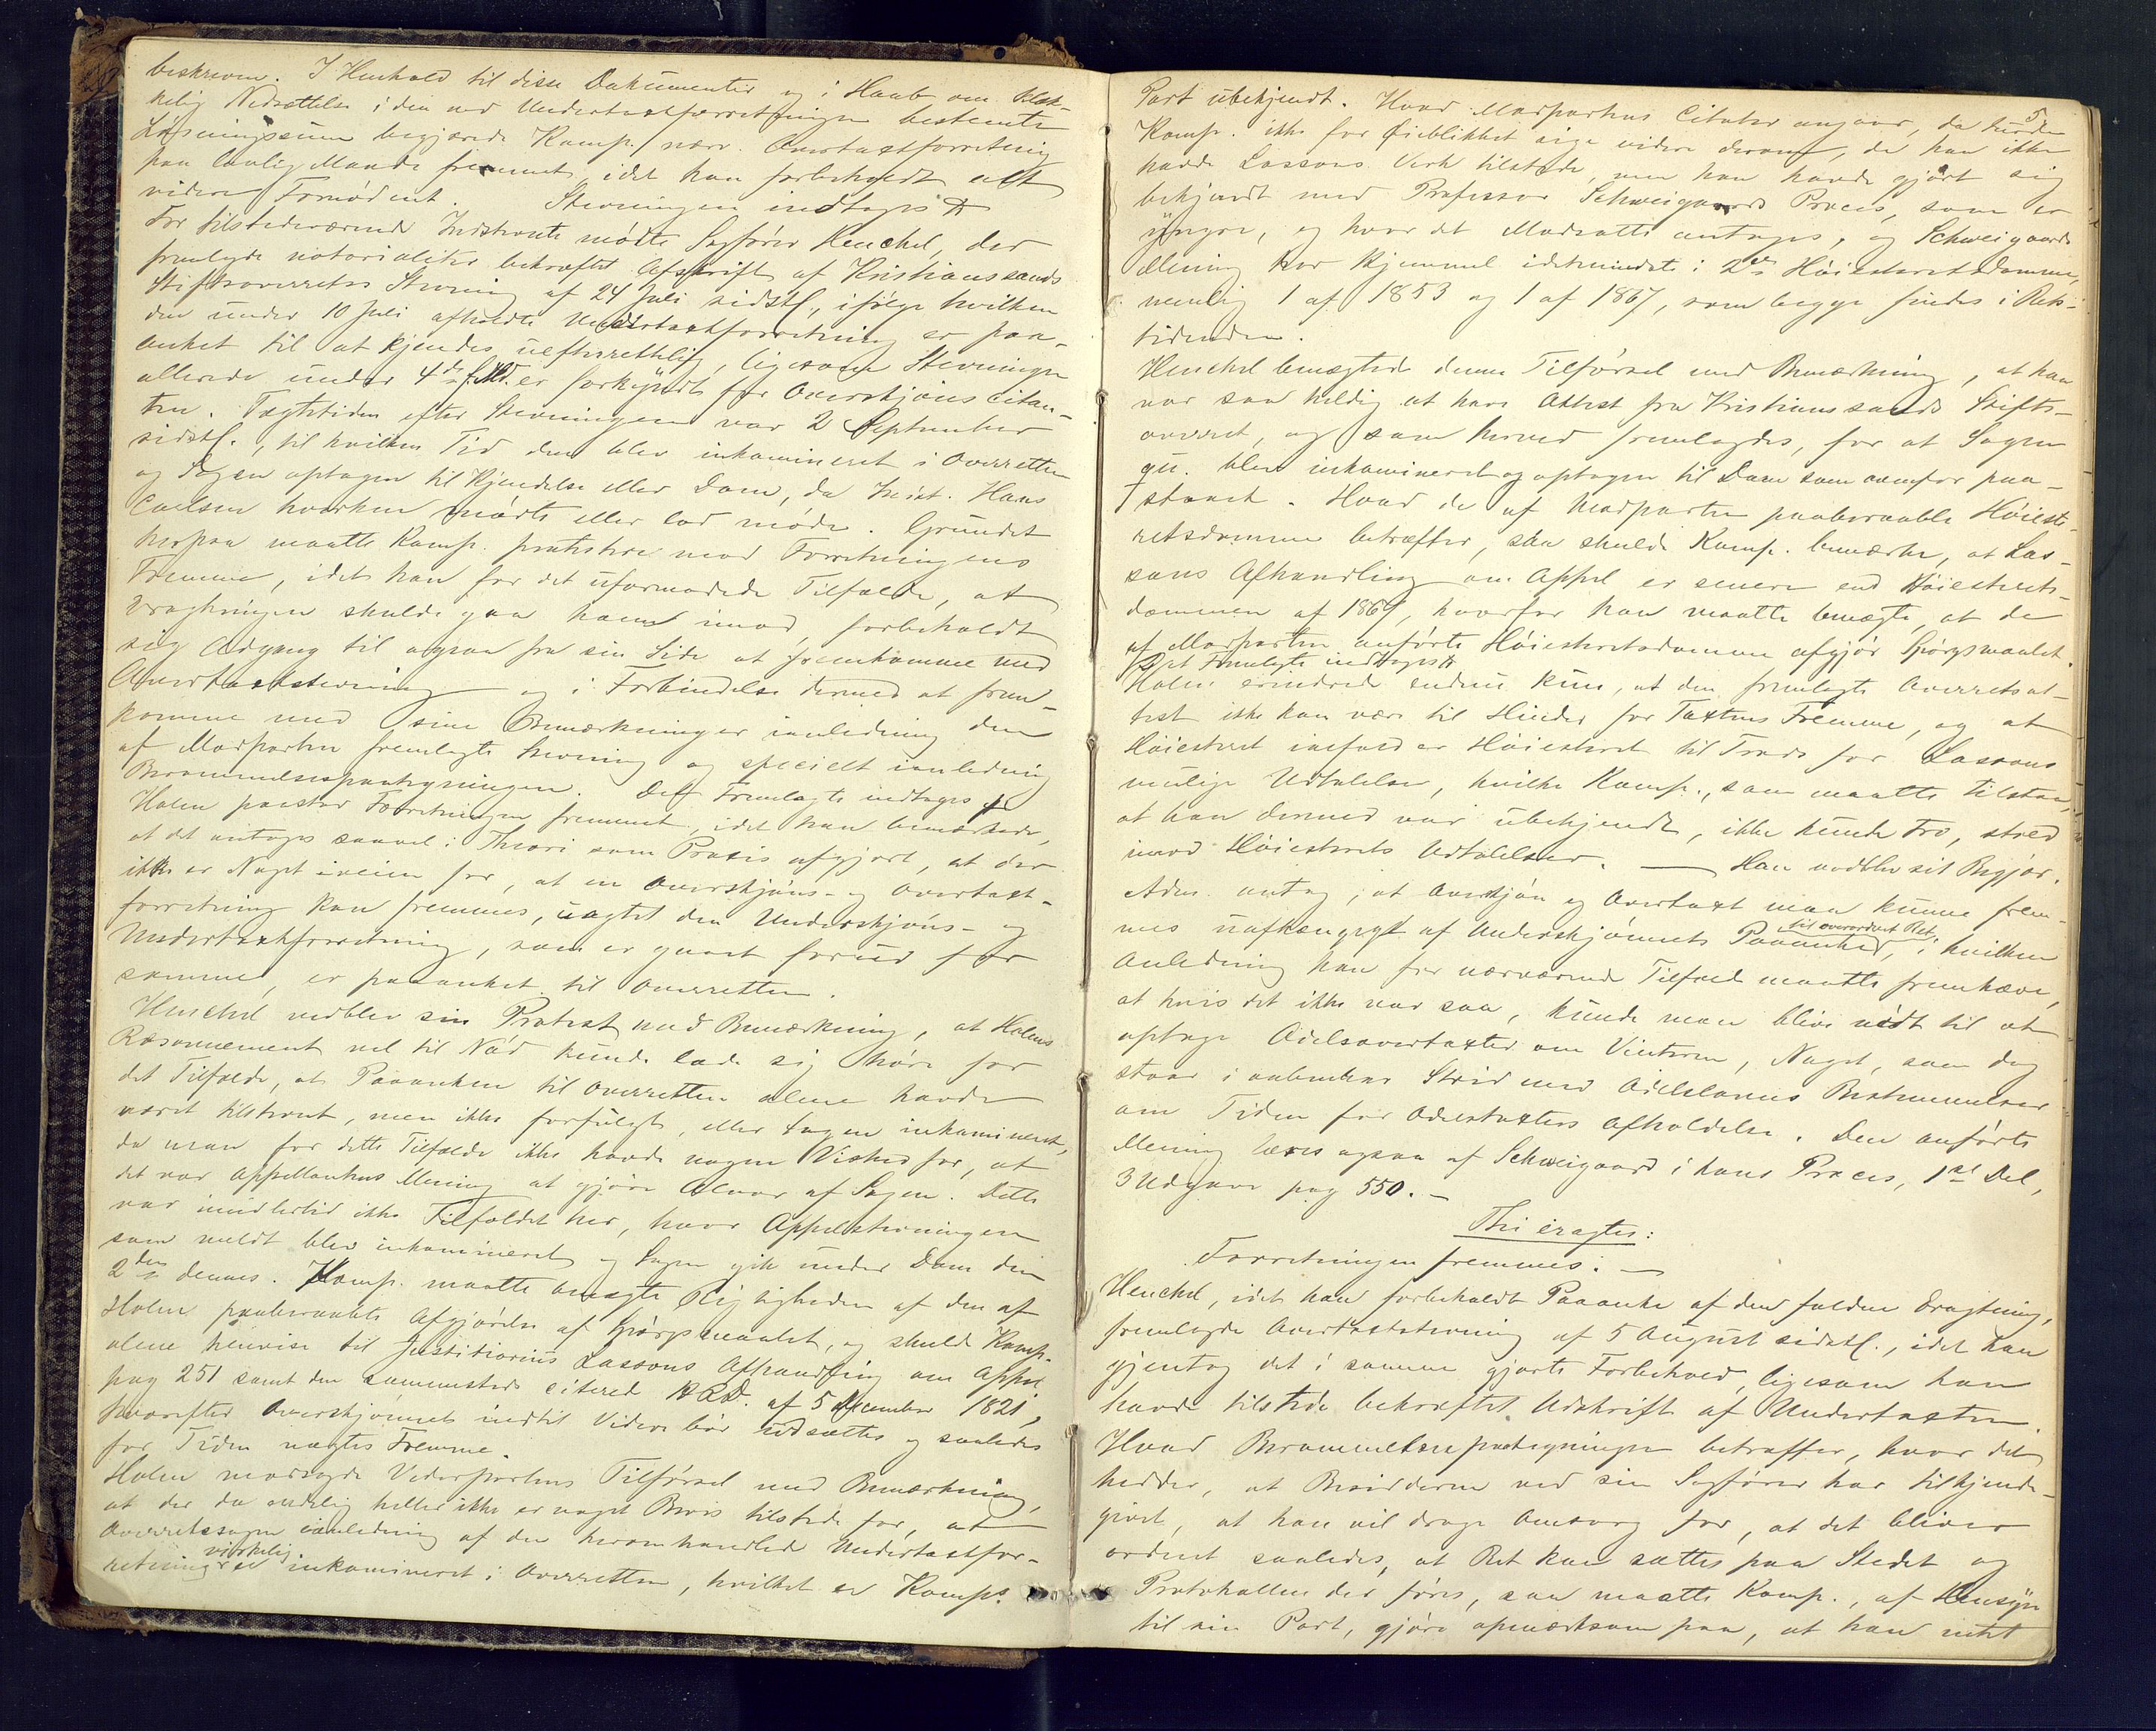 beskreven. I Henhold til disse Dokumenter og i Haab om klæk-
kelig Nedsættelse i den ved Undertaxtforretningen bestemte
Løsningssum begjærede Komp. nærv. Overtaxtforretning
paa lovlig Maade fremmet, idet han forbeholdt alt
videre Fornødent. Stevningen indtages
For tilstedeværende Indstevnte mødte Sagfører Henchel, der
fremlagde notorialiter bekræftet Afskrift af Kristianssands
Stiftsoverrets Stevning af 24 Juli sidstl., ifølge hvilken
den under 10 Juli afholdte Undertaxtforretning er paa-
anket til at kjendes uefterrettelig, ligesom Stevningen
allerede under 4de f. Md. er forkyndt for Overskjøns Citan-
ten. Tægtetiden efter Stevningen var 2 September
sidstl., til hvilken Tid den blev inkamineret i Overretten
og Sagen optagen til Kjendelse eller Dom, da Indst. Hans
Carlsen hverken mødte eller lod møde. Grundet
herpaa maatte Komp. protestere mod Forretningens
Fremme, idet han for det uformodede Tilfælde, at
Eragtningen skulde gaa ham imod, forbeholdt
sig Adgang til ogsaa fra sin Side at fremkomme med
Overtaxtstevning og i Forbindelse dermed at frem-
komme med sine Bemærkninger ianledning den
af Modparten fremlagte Stevning og specielt ianledning
Berammelsespaategningen. Det Fremlagte indtages
Holm paastod Forretningen fremmet, idet han bemærkede,
at det antages saavel i Theori som Praxis afgjort, at der
ikke er Noget iveien for, at en Overskjøns- og Overtaxt-
forretning kan fremmes, uagtet den Underskjøns- og
Undertaxtforretning, som er gaaet forud for
samme, er paaanket til Overretten.
Henchel vedblev sin Protest med Bemærkning, at Holms
Ræsonnement vel til Nød kunde lade sig høre for
det Tilfælde, at Paaanken til Overretten alene havde
været tilstevnt, men ikke forfulgt, eller Sagen inkamineret,
da man for dette Tilfælde ikke havde nogen Vished for, at
det var Appellantens Mening at gjøre Alvor af Sagen. Dette
var imidlertid ikke Tilfældet her, hvor Appelstevningen
som meldt blev inkamineret og Sagen gik under Dom den
2den dennes. Komp. maatte benægte Rigtigheden af den af
Holm paaberaabte Afgjørelse af Spørgsmaalet, og skulde Komp.
alene henvise til Justitiarius Lassons Afhandling om Appel
pag 251 samt den sammesteds siterede HRD. af 5 December 1821,
hvorefter Overskjønnet indtil Videre bør udsættes og saaledes
for Tiden nægtes Fremme.
Holm modsagde Vederpartens Tilførsel med Bemærkning,
at der da endelig heller ikke er noget Bevis tilstede for, at
Overretssagen ianledning af den heromhandlede Undertaxtfor-
retning virkelig er inkamineret i Overretten, hvilket er Komps.
5
Part ubekjendt. Hvad Modpartens Citater angaar, da turde
Komp. ikke for Øieblikket sige videre derom, da han ikke
havde Lassons Verk tilstede, men han havde gjort sig
bekjendt med Professor Schweigaards Proces, som er
yngre, og hvor det Modsatte antages, og Schweigaards
Mening har Hjemmel idetmindste i 2de Høiesteretsdomme,
nemlig 1 af 1853 og 1 af 1867, som begge findes i Rets-
tidenden.
Henchel benægtede denne Tilførsel med Bemærkning, at han
var saa heldig at have Attest fra Kristianssands Stifts-
overret, og som herved fremlagdes, for at Sagen
qu. blev inkamineret og optagen til Dom som ovenfor paa-
staaet. Hvad de af Modparten paaberaabte Høieste-
retsdomme betræffer, saa skulde Komp. bemærke, at Las-
sons Afhandling om Appel er senere end Høiesterets-
dommen af 1867, hvorfor han maatte benægte, at de
af Modparten anførte Høiesteretsdomme afgjør Spørgsmaalet.
Det Fremlagte indtages
Holm erindrede endnu kun, at den fremlagte Overretsat-
test ikke kan være til Hinder for Taxtens Fremme, og at
Høiesteret ialfald er Høiesteret til Trods for Lassons
mulige Udtalelse, hvilke Komp., som maatte tilstaa,
at han dermed var ubekjendt, ikke kunde tro, stred
imod Høiesterets Udtalelser. — Han vedblev sit Begjær.
Adm. antog, at Overskjøn og Overtaxt maa kunne frem-
mes uafhængigt af Underskjønnets Paaanken til overordnet Ret, i hvilken
Anledning han for nærværende Tilfælde maatte fremhæve,
at hvis det ikke var saa, kunde man blive nødt til at
optage Odelsovertaxter om Vinteren, Noget, som dog
staar i aabenbar Strid med Odelslovens Bestemmelser
om Tiden for Odelstaxters Afholdelse. Den anførte
Mening læres ogsaa af Schweigaard i hans Proces, 1ste Del,
3 Udgave pag 550. —
Thi eragtes:
Forretningen fremmes. —
Henchel, idet han forbeholdt Paaanke af den faldne Eragtning,
fremlagde Overtaxtstevning af 5 August sidstl., idet han
gjentog det i samme gjorte Forbehold, ligesom han
havde tilstede bekræftet Udskrift af Undertaxten.
Hvad Berammelsespaategningen betræffer, hvor det
hedder, at Besidderen ved sin Sagfører har tilkjende-
givet, at han vil drage Omsorg for, at det bliver
ordnet saaledes, at Ret kan sættes paa Stedet og
Protokollen der føres, saa maatte Komp., af Hensyn
til sin Part, gjøre opmærksom paa, at han intet